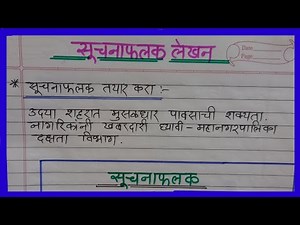 सूचनाफलक लेखन
* सूचनाफलक तयार करा :-
उद्या शहरात मुसळधार पावसाची शक्यता.
नागरिकांनी खबरदारी घ्यावी - महानगरपालिका
दक्षता विभाग.
सूचनाफलक